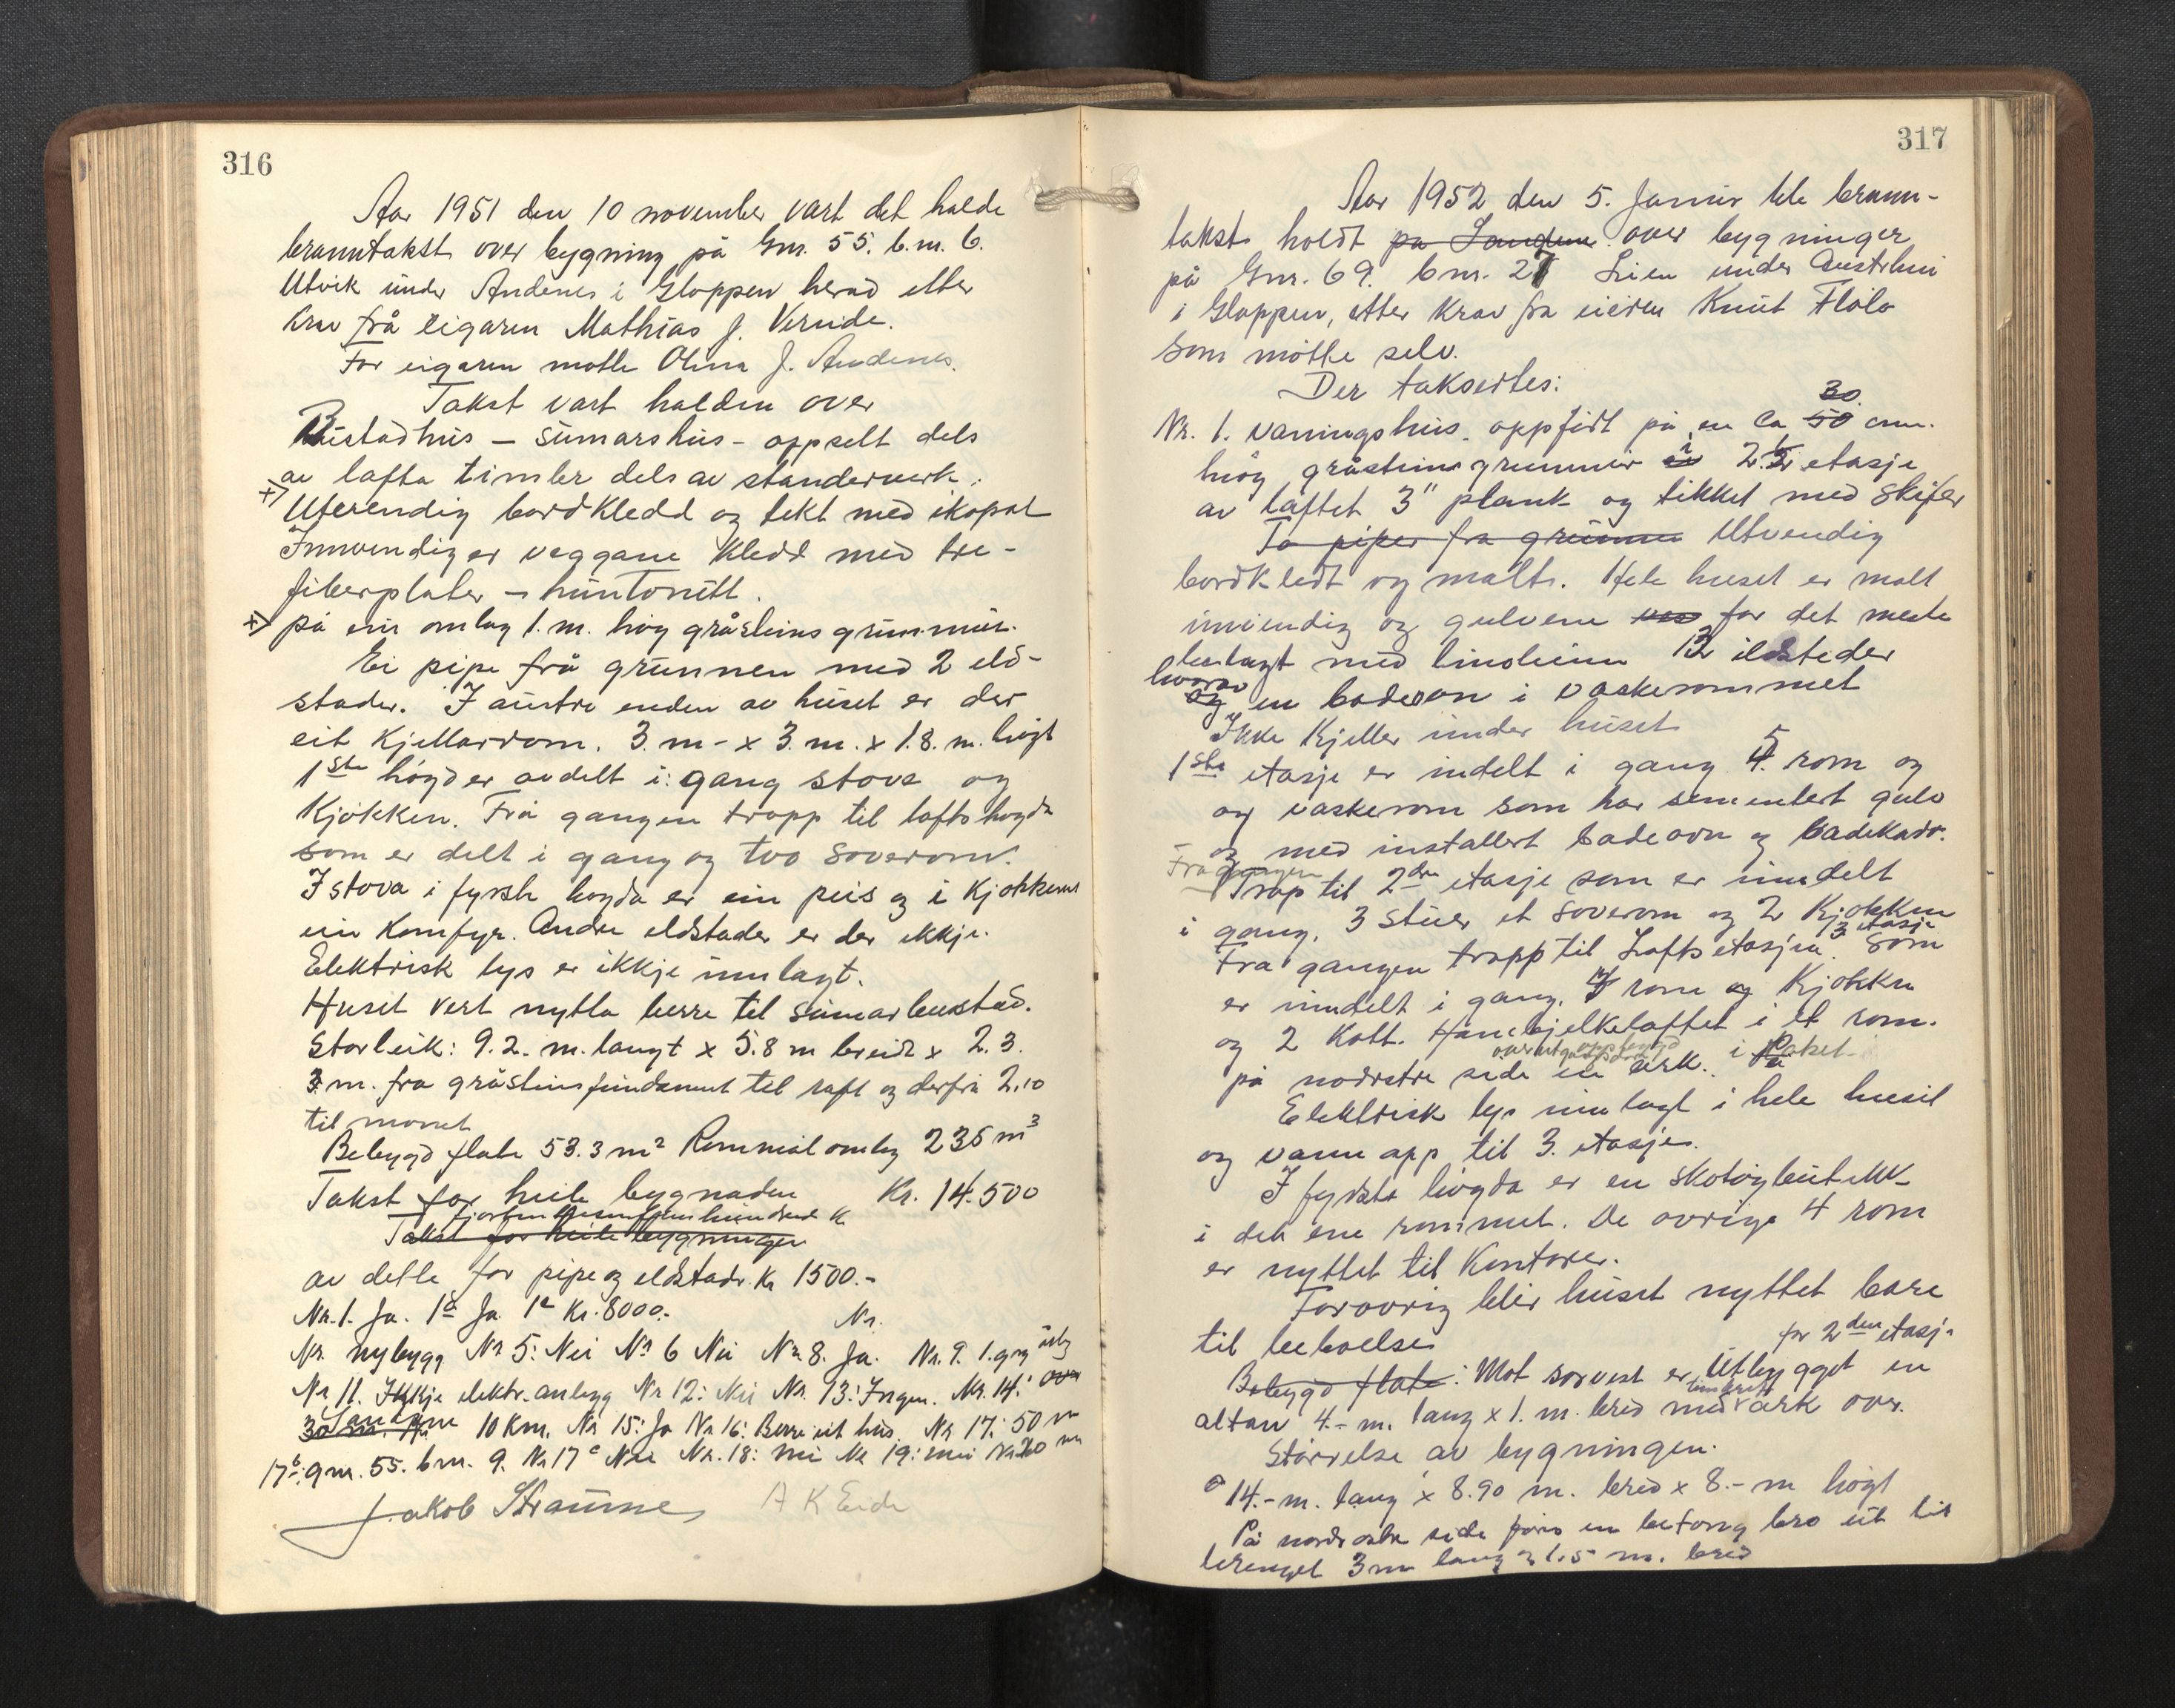 316
Aar 1951 den 10 november vart det halde
branntakst over bygning på Gnr. 55. b.m. 6.
Utvik under Andenes i Gloppen herad etter
krav frå eigaren Mathias J. Vereide.
For eigaren møtte Olina J. Andenes.
Takst vart halden over
Bustadhus – sumarshus – oppselt dels
av lafta timber dels av standerverk.
x) Utvendig bordkledd og tekt med ikopal
Innvendig er veggane kledd med tre-
fiberplater – huntonitt.
x) på ein omlag 1. m. høg gråsteins grunnmur.
Ei pipe frå grunnen med 2 eld-
stader. I austre enden av huset er der
eit Kjellarrom. 3. m - x 3. m. x 1.8. m. høgt
1ste høgd er avdelt i: gang stova og
Kjøkken. Frå gangen tropp til loftshøgda
som er delt i gang og tvo soverom.
I stova i fyrste høgda er ein peis og i Kjøkkenet
ein Komfyr. Andre eldstader er der ikkje.
Elektrisk lys er ikkje innlagt.
Huset vert nytta berre til sumarbustad.
Storleik: 9.2. m. langt x 5.8 m breidt x 2.3.
3 m. fra gråsteinsfundament til raft og derfrå 2.10
til mønet
Bebygd flate 53.3 m² Rommål omlag 235 m³
Takst for heile bygnaden Kr. 14.500
fjortentusenfemhundred Kr
Takst for heile bygningen
av dette for pipe og eldstader Kr 1500.-
Nr. 1. Ja. 1a Ja 1c Kr. 8000.- Nr.
Nr. nybygg Nr 5: Nei Nr 6 Nei Nr 8. Ja. Nr. 9. 1. gong årleg
Nr 11. Ikkje elektr. anlegg Nr 12: Nei Nr. 13: Ingen. Nr. 14: over
Sandane
10 Km. Nr 15: Ja Nr 16: Berre eit hus. Nr 17: 50 m
17b: gnr. 55. bnr. 9. Nr 17c Nei Nr. 18: nei Nr 19: nei Nr 20 nei
Jakob Straume A K Eide
317
Aar 1952 den 5. Januar ble brann-
takst holdt på Sandane over bygninger
på Gnr. 69. bnr. 27 Lien under Austrheim
i Gloppen, etter krav fra eieren Knut Flølo
som møtte selv.
Der taksertes:
30
Nr. 1. våningshus. oppført på en ca 50 cm.
høg gråsteins grunnmur i 2 1/2 etasje
av laftet 3" plank og tekket med skifer
To piper fra grunnen Utvendig
bordkledt og malt. Hele huset er malt
innvendig og gulvene for det meste
belagt med linoleum 12 ildsteder
hvorav
og en badeovn i vaskerommet
Ikke Kjeller under huset
5
1ste etasje er indelt i gang 4. rom og
og vaskerom som har sementert gulv
og med installert badeovn og badekar.
Fra gangen
Trap til 2den etasje som er inndelt
i gang. 3 stuer et soverom og 2 Kjøkken
3 etasje
Fra gangen tropp til Loftsetasjen som
er inndelt i gang. 4 rom og Kjøkken
og 2 Kott. Hanebjelkeloftet i et rom.
over utgangsdøren oppbygd
på nordre side en ark. i taket
Elektrisk lys innlagt i hele huset
og vann opp til 3. etasje.
I fyrste høgda er en skotøybutikk
i det ene rommet. De øvrige 4 rom
er nyttet til Kontorer.
Forøvrig blir huset nyttet bare
til beboelse
for 2den etasje
Bebygd flate: Mot sørvest er Utbygget en
altan 4.- m. lang x 1. m. bred med ark over.
Størrelse av bygningen.
14.- m. lang x 8.90 m. bred x 8.- m høgt
På nordøstre side føres en betong bro ut til
terenget 3 m lang og 1.5 m. bred